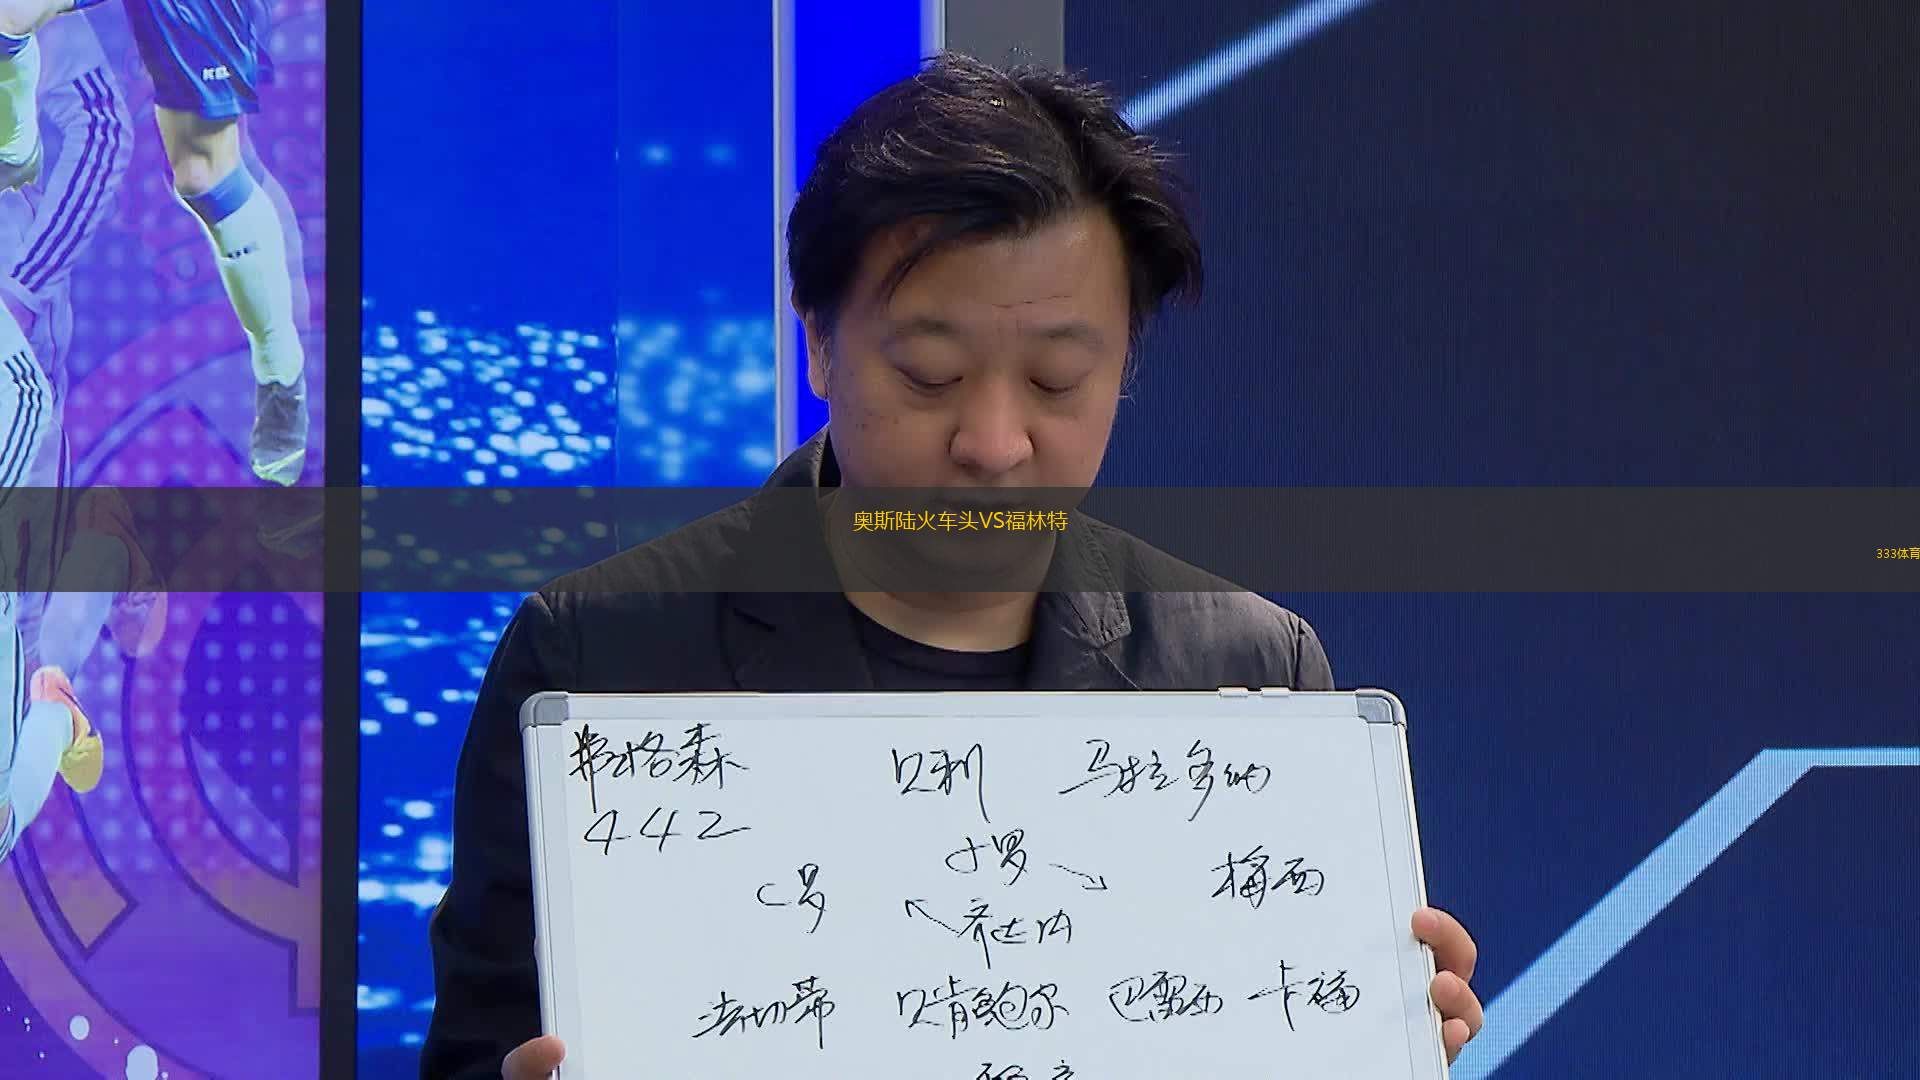 KEL
奥斯陆火车头VS福林特
333体育
弗格森 贝利 马拉多纳
442
小罗
C罗 梅西
齐达内
法切蒂 贝肯鲍尔 巴雷西 卡福